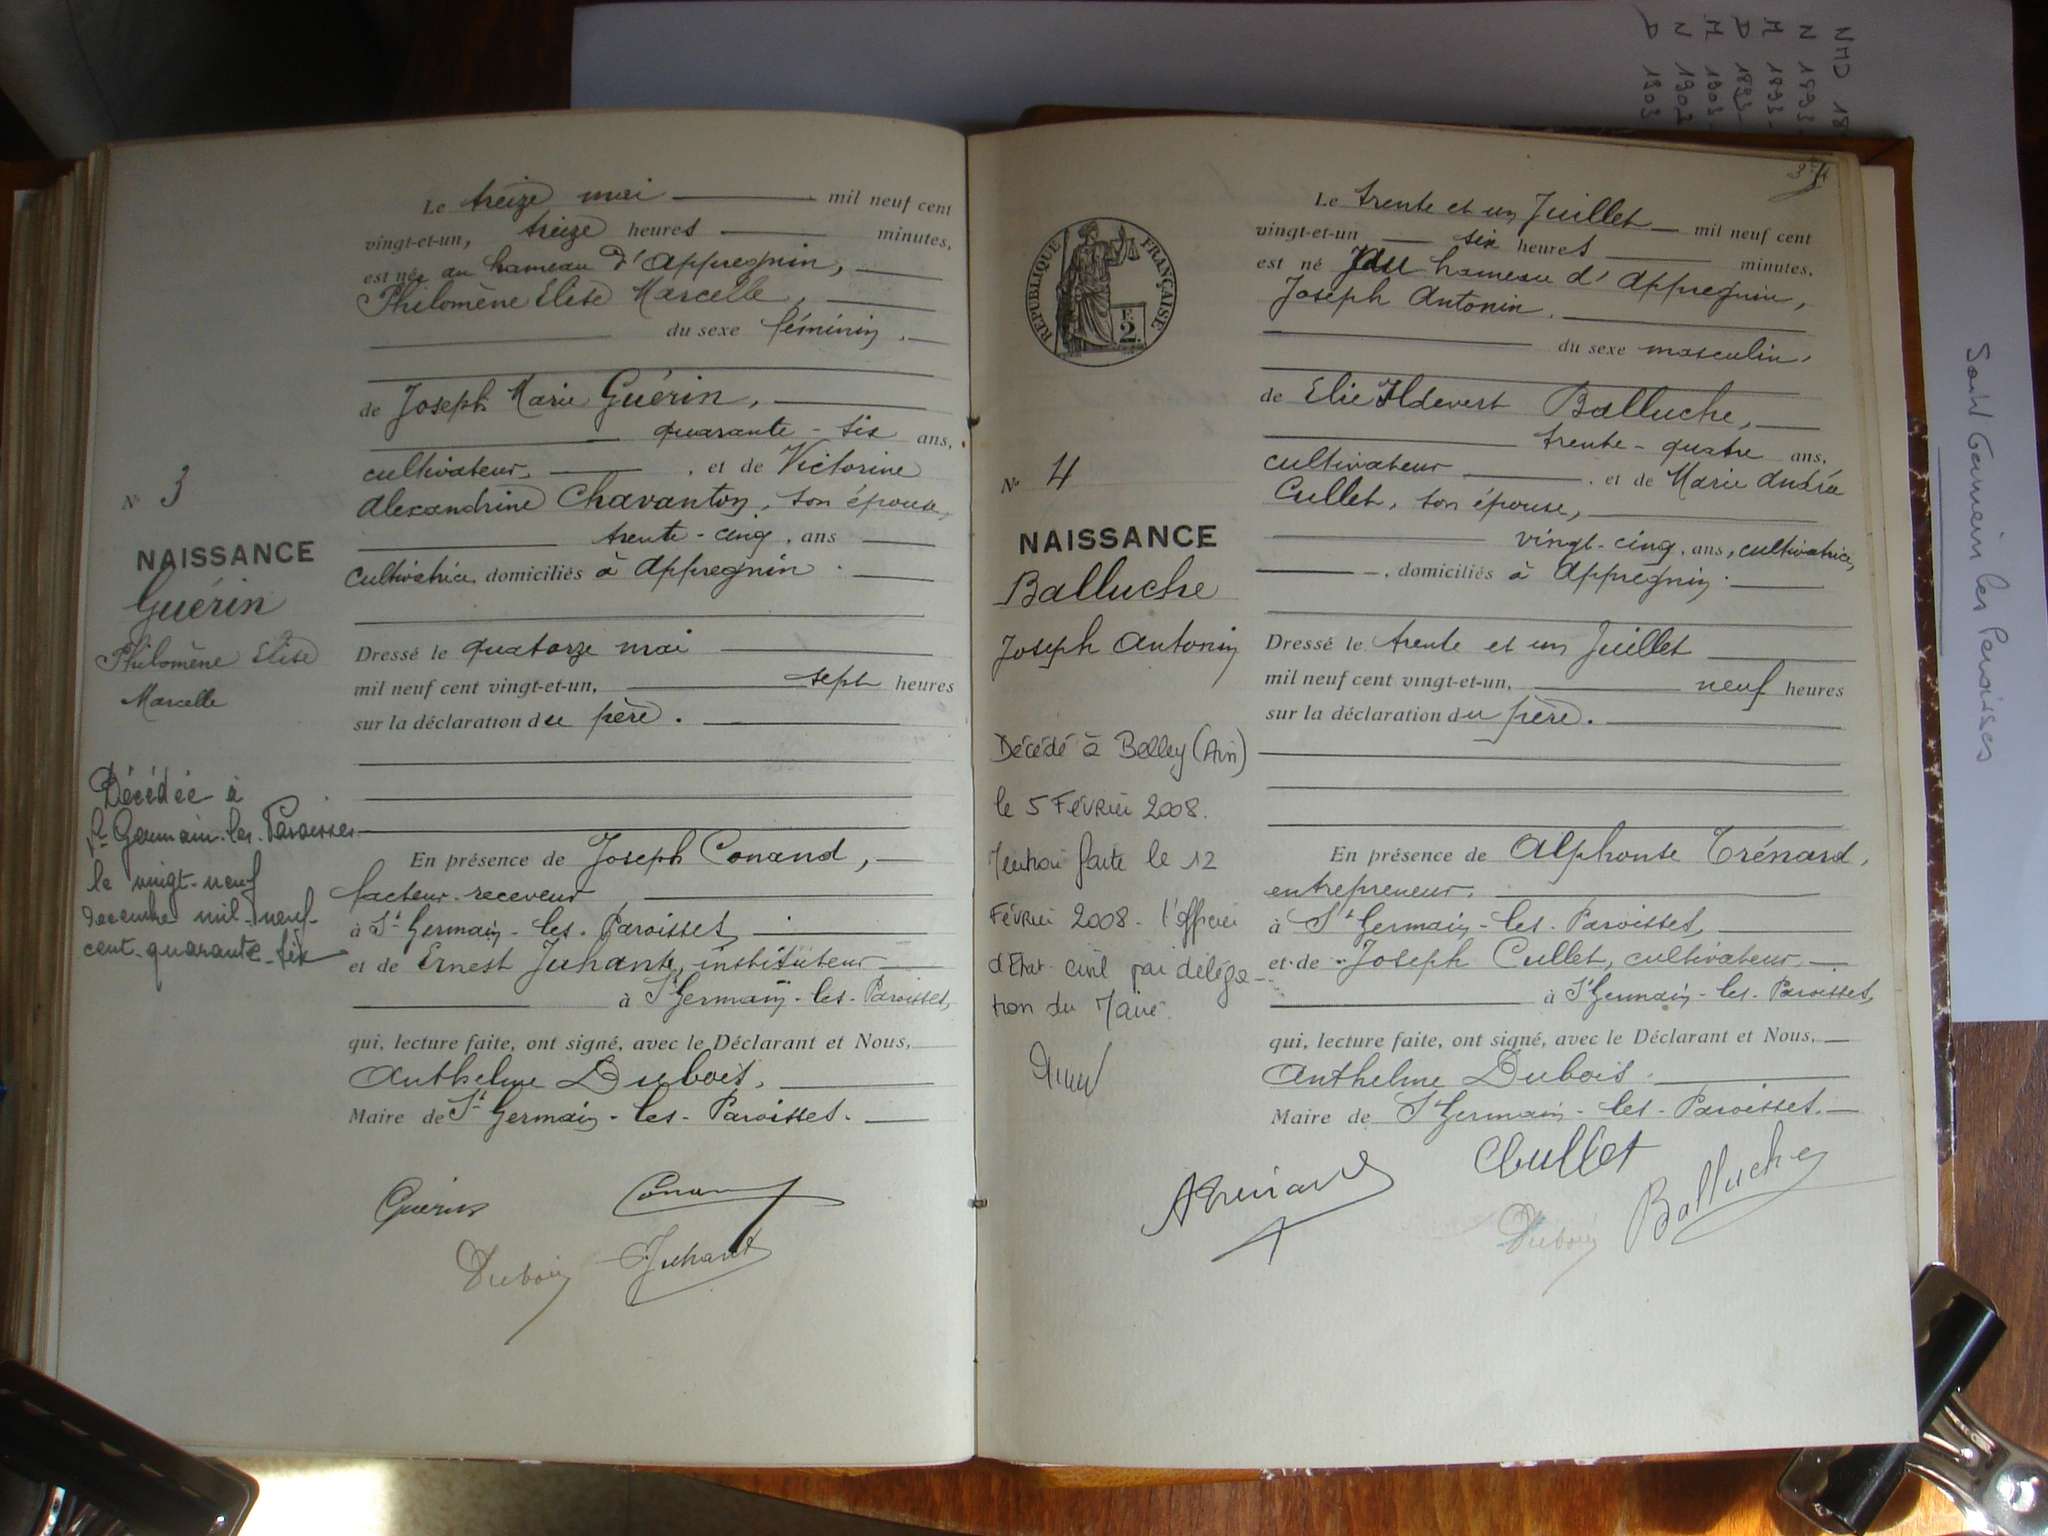 Le treize mai mil neuf cent
vingt-et-un, treize heures minutes,
est née au hameau d'Appregnin,
Philomène Elise Marcelle,
du sexe féminin,
de Joseph Marie Guérin,
quarante-six ans,
cultivateur, et de Victorine
Alexandrine Chavanton, son épouse,
trente-cinq, ans
cultivatrice, domiciliés à Appregnin.
Dressé le quatorze mai
mil neuf cent vingt-et-un, sept heures
sur la déclaration du père.
En présence de Joseph Conand,
facteur-receveur
à St Germain-les-Paroisses,
et de Ernest Juhant, instituteur
à St Germain-les-Paroisses,
qui, lecture faite, ont signé, avec le Déclarant et Nous,
Anthelme Dubois,
Maire de St Germain-les-Paroisses.
Guérin Conand
Dubois Juhant
No 3
NAISSANCE
Guérin
Philomène Elise
Marcelle
Décédée à
St Germain-les-Paroisses
le vingt-neuf
décembre mil-neuf-
cent-quarante-six
34
REPUBLIQUE FRANÇAISE
F.
2.
Le trente et un Juillet mil neuf cent
vingt-et-un six heures minutes,
est né au hameau d'Appregnin,
Joseph Antonin,
du sexe masculin,
de Elie Ildevert Balluche,
trente-quatre ans,
cultivateur, et de Marie Andréa
Cullet, son épouse,
vingt-cinq, ans, cultivatrice,
, domiciliés à Appregnin.
Dressé le trente et un Juillet
mil neuf cent vingt-et-un, neuf heures
sur la déclaration du père.
En présence de Alphonse Trénard,
entrepreneur,
à St Germain-les-Paroisses,
et de Joseph Cullet, cultivateur,
à St Germain-les-Paroisses,
qui, lecture faite, ont signé, avec le Déclarant et Nous,
Anthelme Dubois,
Maire de St Germain-les-Paroisses.
ATrénard Cullet Balluche
Dubois
No 4
NAISSANCE
Balluche
Joseph Antonin
Décédé à Belley (Ain)
le 5 Février 2008.
Mention faite le 12
Février 2008 - l'officier
d'Etat civil par déléga-
tion du Maire.
NMD 18
N 1893-
M 1893-
D 1893-
M 1903-
N 1902
D 1903
Saint Germain les Paroisses